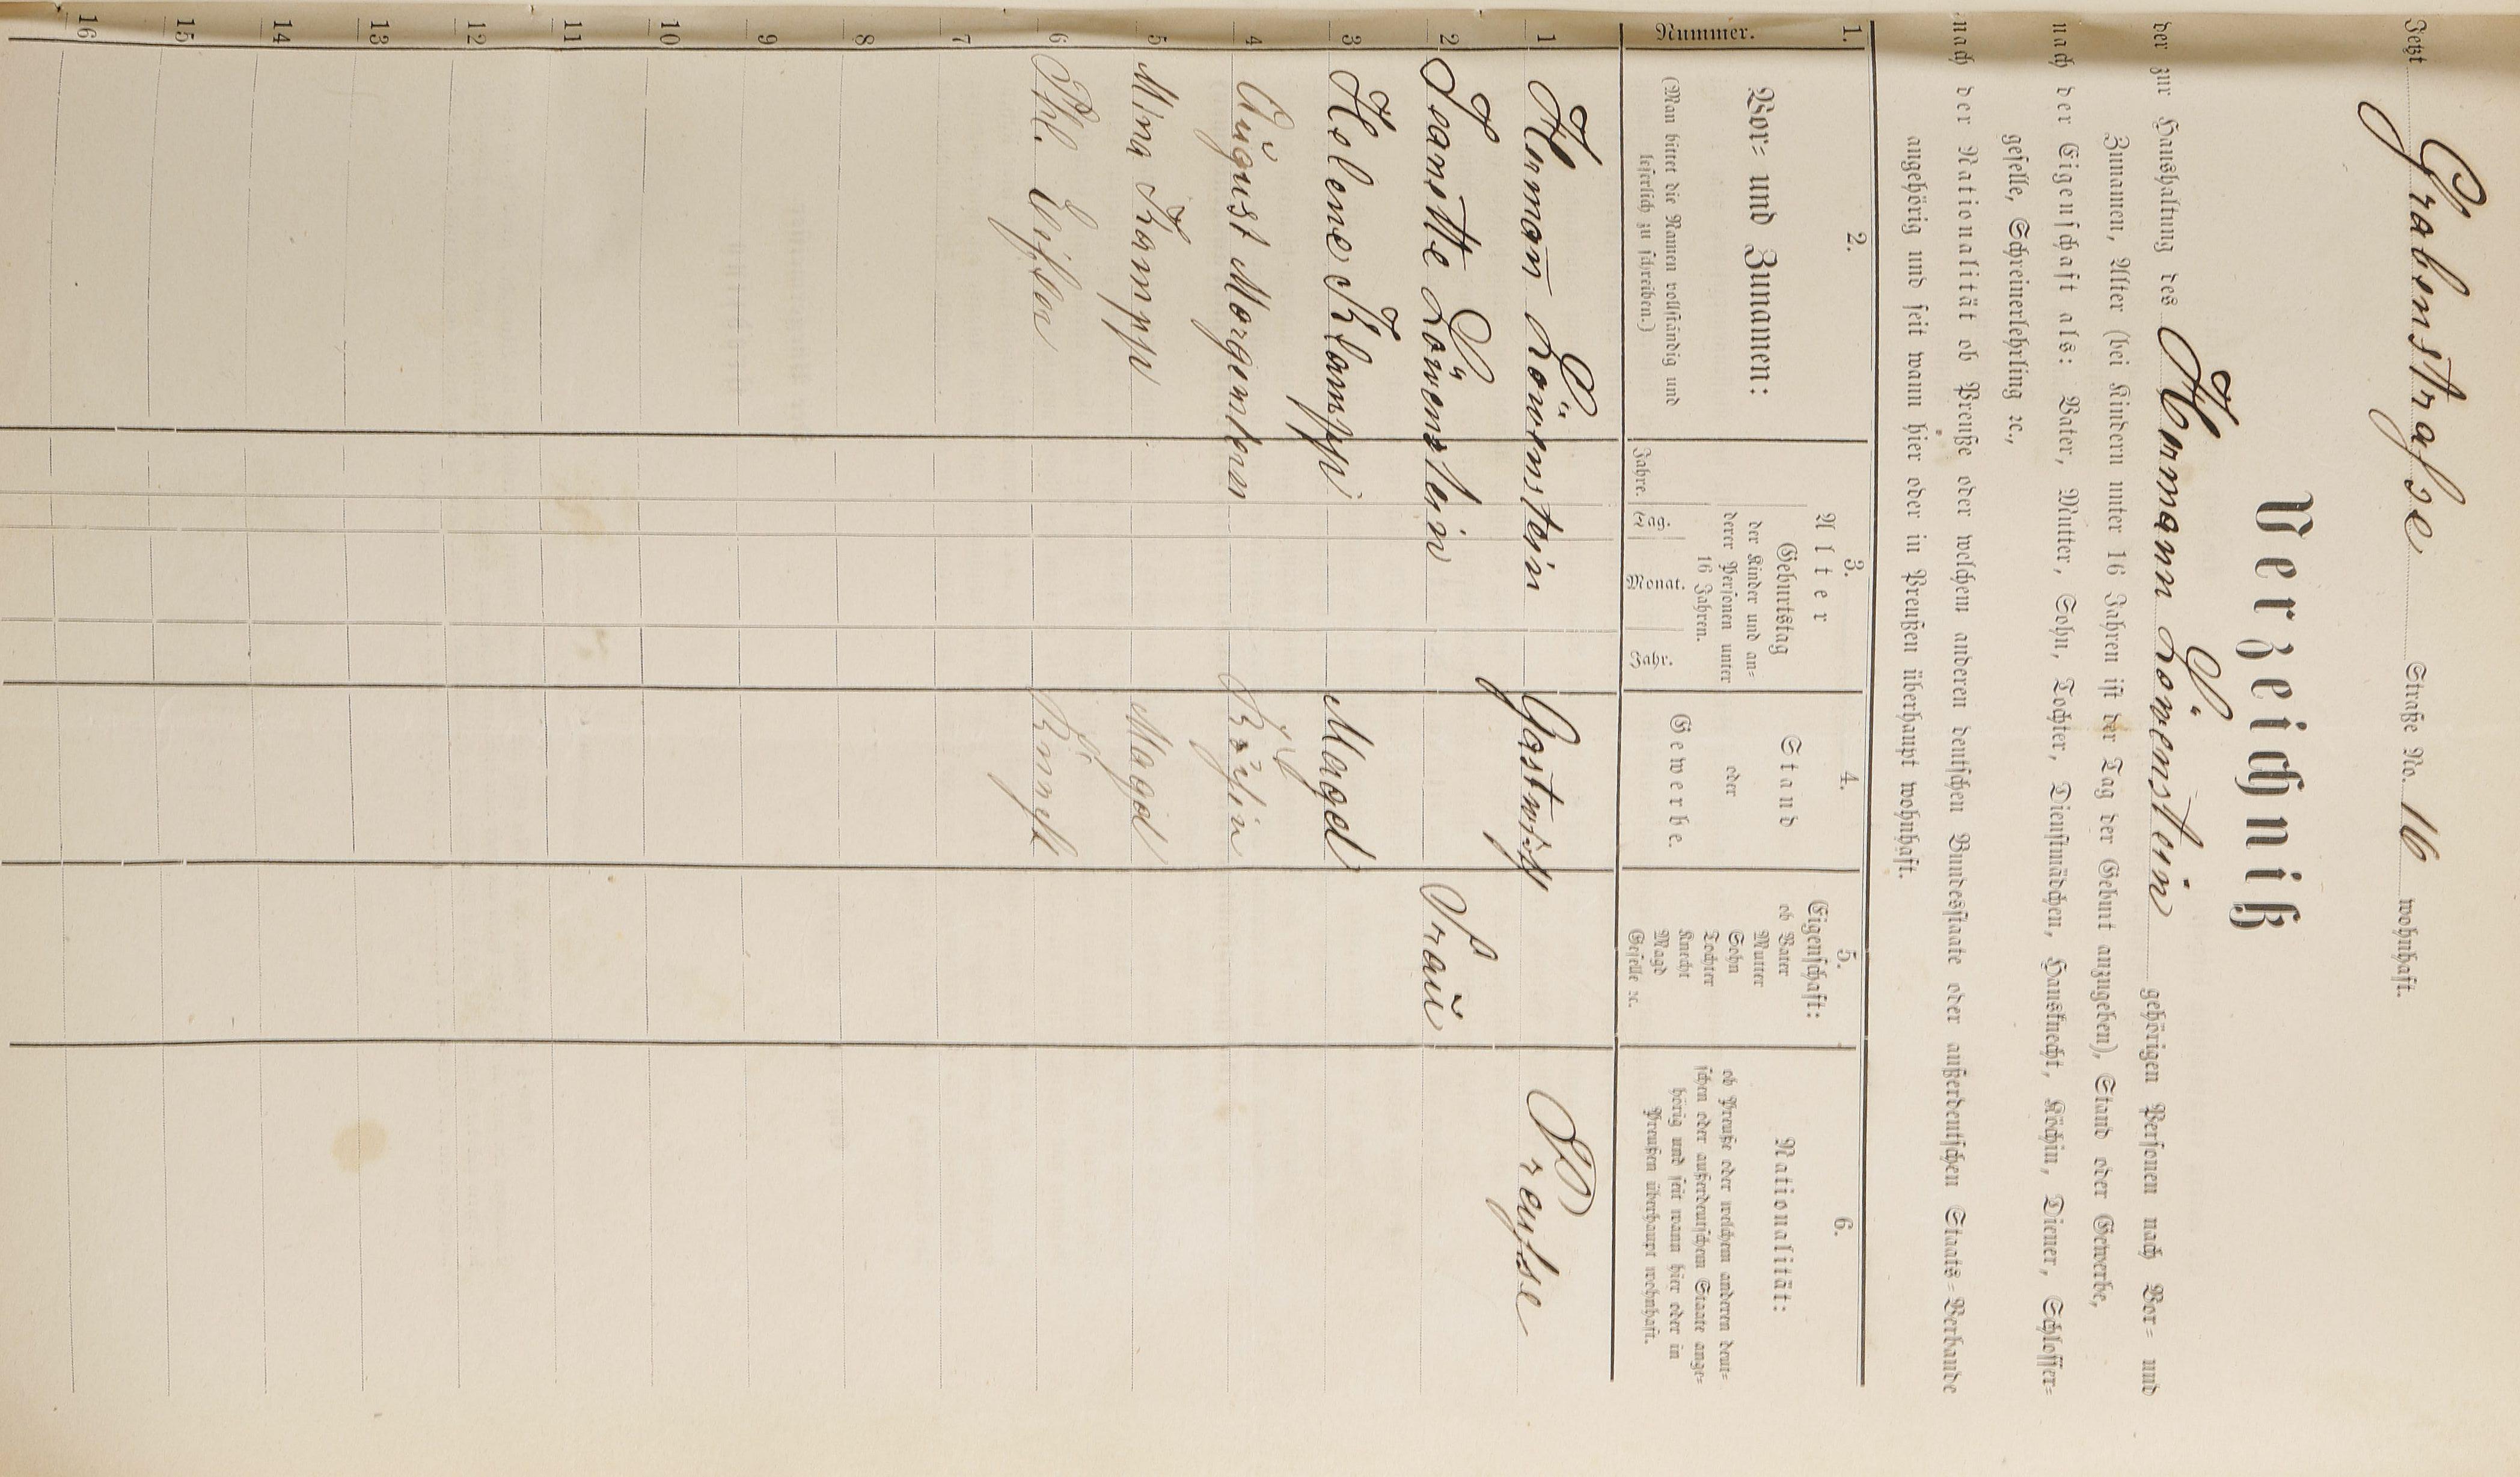 Jetzt Grabenstraße Straße No. 16 wohnhaft.
Verzeichniß
der zur Haushaltung des Hermann Löwenstein gehörigen Personen nach Vor- und
Zunamen, Alter (bei Kindern unter 16 Jahren ist der Tag der Geburt anzugeben), Stand oder Gewerbe,
nach der Eigenschaft als: Vater, Mutter, Sohn, Tochter, Dienstmädchen, Hausknecht, Köchin, Diener, Schlosser-
geselle, Schreinerlehrling ꝛc.,
nach der Nationalität ob Preuße oder welchem anderen deutschen Bundesstaate oder außerdeutschen Staats-Verbande
angehörig und seit wann hier oder in Preußen überhaupt wohnhaft.
1. 2. 3. 4. 5. 6.
Nummer.
Vor- und Zunamen:
(Man bittet die Namen vollständig und
leserlich zu schreiben.)
Alter
Geburtstag
der Kinder und an-
derer Personen unter
16 Jahren.
Jahre. Tag. Monat. Jahr.
Stand
oder
Gewerbe.
Eigenschaft:
ob Vater
Mutter
Sohn
Tochter
Knecht
Magd
Geselle ꝛc.
Nationalität:
ob Preuße oder welchem anderem deut-
schen oder außerdeutschem Staate ange-
hörig und seit wann hier oder in
Preußen überhaupt wohnhaft.
1 Herman̄ Löwenstein Gastwirth Preuße
2 Jeanette Löwenstein Frau
3 Helene Klampp Magd
4 August Morgenstern
5 Mina Kampp Magd
6 Phl. Knecht
7
8
9
10
11
12
13
14
15
16